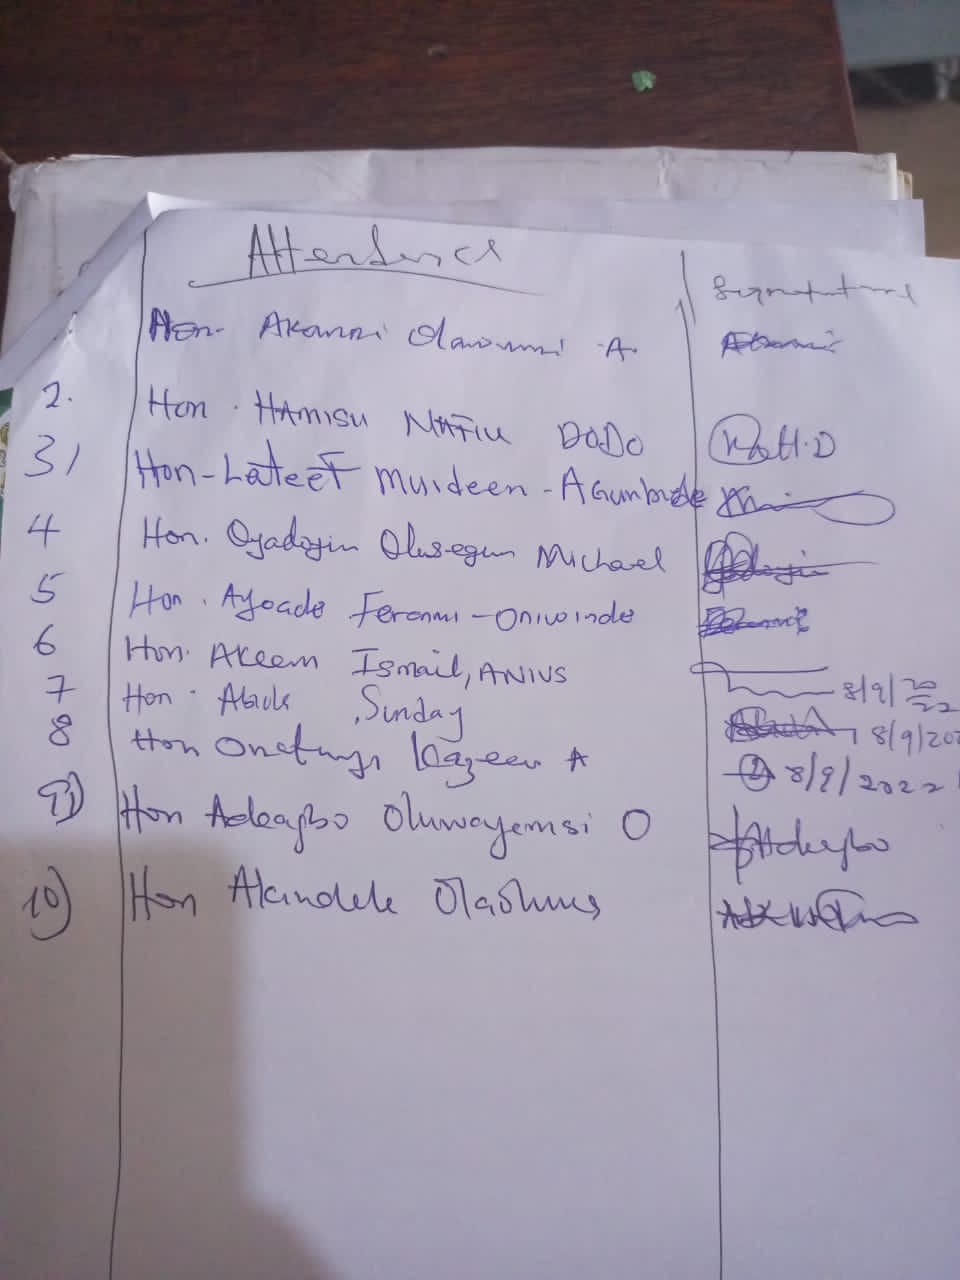 Attendance
Signature
Hon. Akanni Olawumi A.
2. Hon. HAMISU NAFIU DODO
3) Hon-Lateef Muideen-Agunbiade
4 Hon. Oyadoyin Olusegun Michael
5 Hon. Ayoade Feranmi-Oniwinde
6 Hon. Akeem Ismail, ANIUS
8/9/2022
7 Hon. Abiola, Sunday
8/9/202
8 Hon Kazeem A
8/9/2022
9) Hon Adeagbo Oluwayemisi O
Adeagbo
10) Hon Akindele